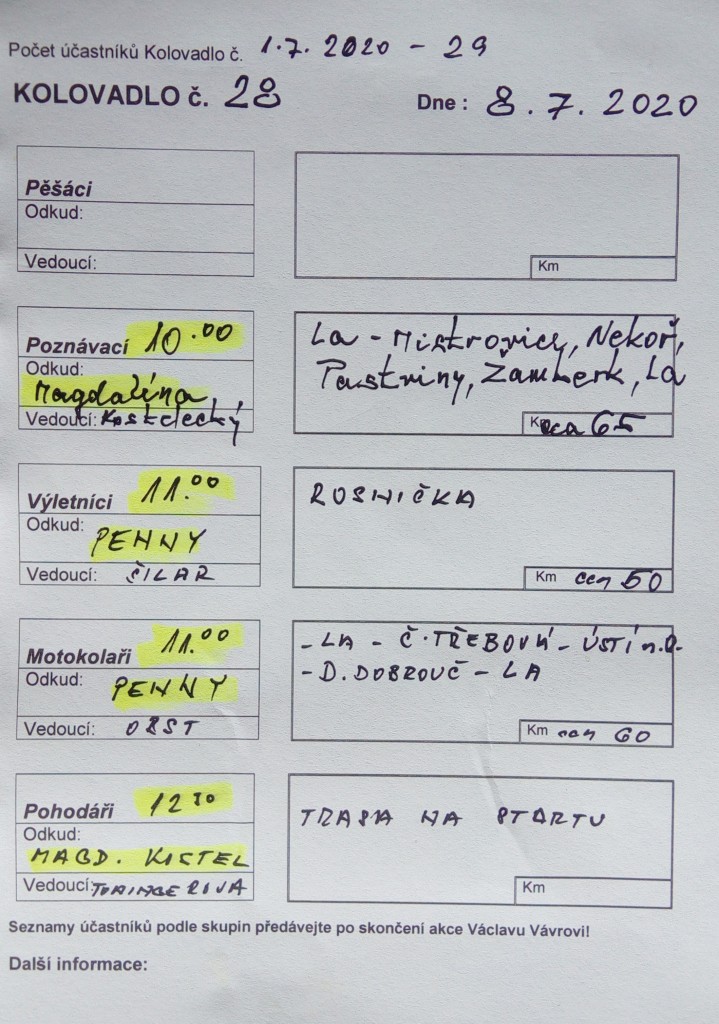 Počet účastníků Kolovadlo č. 1.7. 2020 - 29
KOLOVADLO č. 28 Dne : 8. 7. 2020
Pěšáci
Odkud:
Vedoucí:
Km
Poznávací 10.00
Odkud:
Magdaléna
Vedoucí: Kostelecký
La - Mistrovice, Nekoř,
Pastviny, Žamberk, La
Km cca 65
Výletníci 11.00
Odkud:
PENNY
Vedoucí: ŠILAR
ROSNIČKA
Km cca 50
Motokolaři 11.00
Odkud:
PENNY
Vedoucí: OBST
- LA - Č.TŘEBOVÁ - ÚSTÍ n.O.
- D.DOBROUČ - LA
Km cca 60
Pohodáři 12 30
Odkud:
MAGD. KOSTEL
Vedoucí:
TRASA NA STARTU
Km
Seznamy účastníků podle skupin předávejte po skončení akce Václavu Vávrovi!
Další informace: